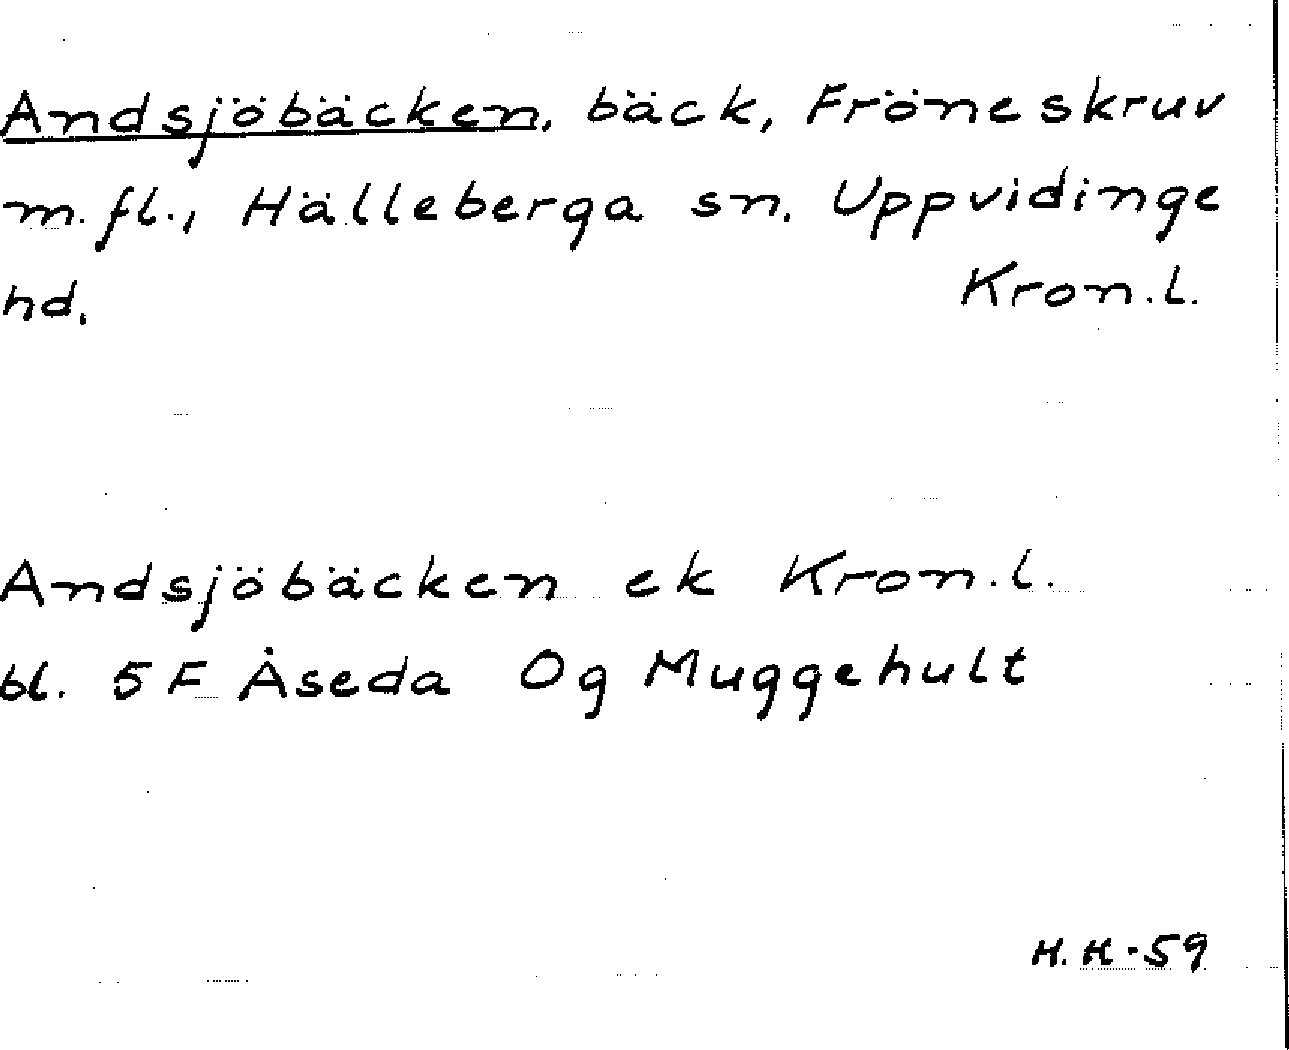 Andsjöbäcken, bäck, Fröneskruv
m.fl., Hälleberga sn. Uppvidinge
hd. Kron.l.
Andsjöbäcken ek Kron.l.
bl. 5 F Åseda Og Muggehult
H. K-59